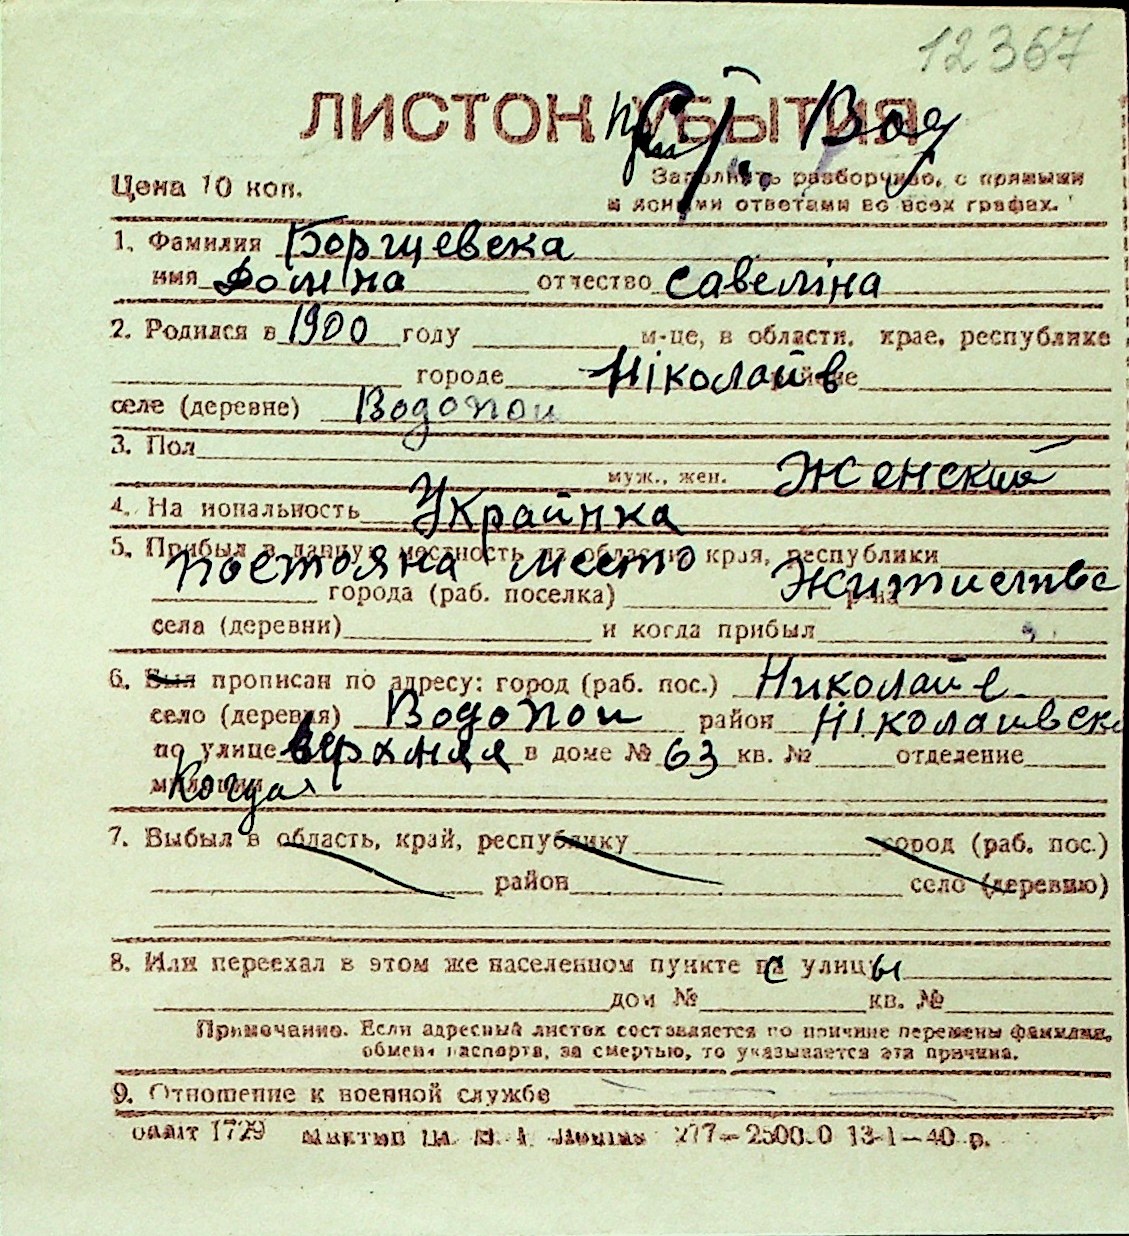 12367
ЛИСТОК УБЫТИЯ
Цена 10 коп.
Заполнять разборчиво, с прямыми
и ясными ответами во всех графах.
1. Фамилия Борщевска
имя Домна отчество Савелiна
2. Родился в 1900 году м-це, в области, крае, республике
городе Нiколайв
селе (деревне) Водопои
3. Пол
муж., жен. Женский
4. Национальность Украйнка
5. Прибыл в данную местность из области края, республики
Постояна место Жительтва
города (раб. поселка) р-на
села (деревни) и когда прибыл
6. Был прописан по адресу: город (раб. пос.) Николаие
село (деревня) Водопои район Нiколаивска
по улице верхняя в доме № 63 кв. № отделение
милиции Когда
7. Выбыл в область, край, республику город (раб. пос.)
район село (деревню)
8. Или переехал в этом же населенном пункте с улицы
дом № кв. №
Примечание. Если адресный листок составляется по причине перемены фамилии,
обмена паспорта, за смертью, то указывается эта причина.
9. Отношение к военной службе
1729 277—2500.0 13-1—40 р.